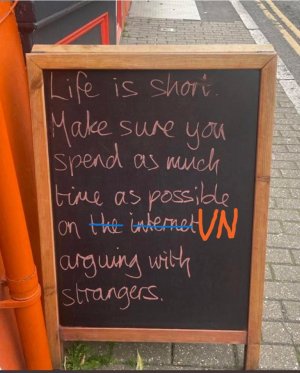 Life is short.
Make sure you
spend as much
time as possible
on the internet VN
arguing with
strangers.